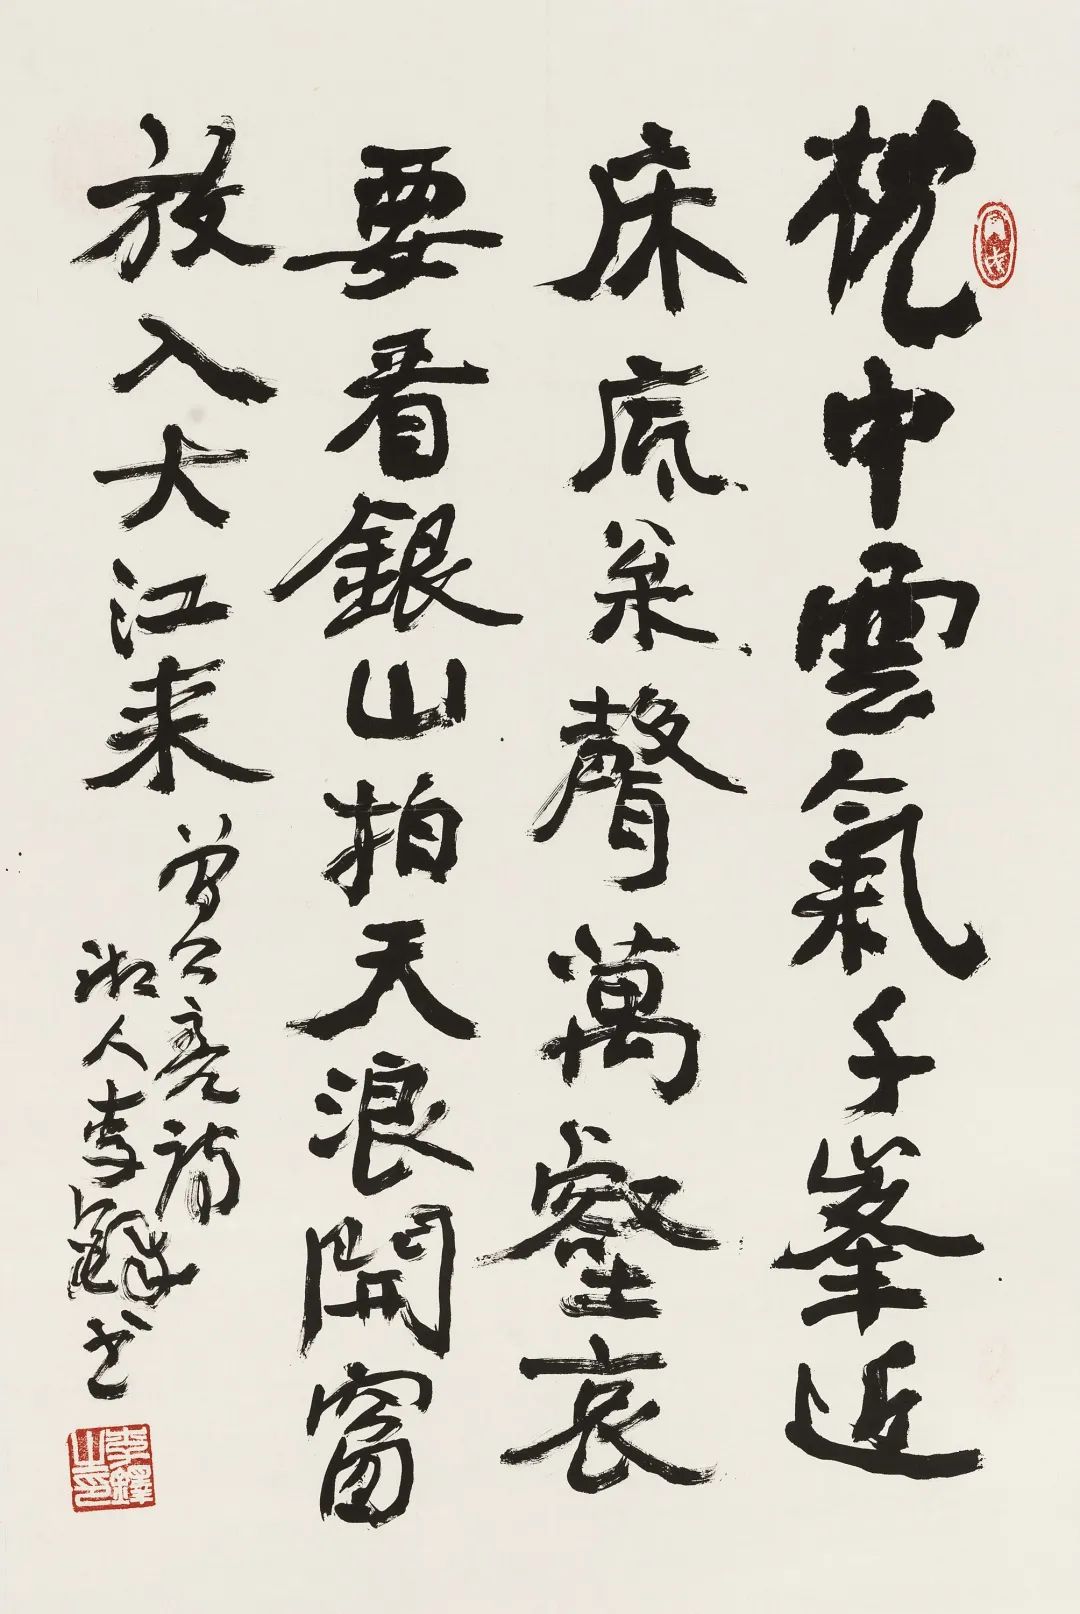 枕中雲氣千峯近
床底枀聲萬壑哀
要看銀山拍天浪開窗
放入大江来
曾公亮詩
湘人李鐸书
李鐸之印